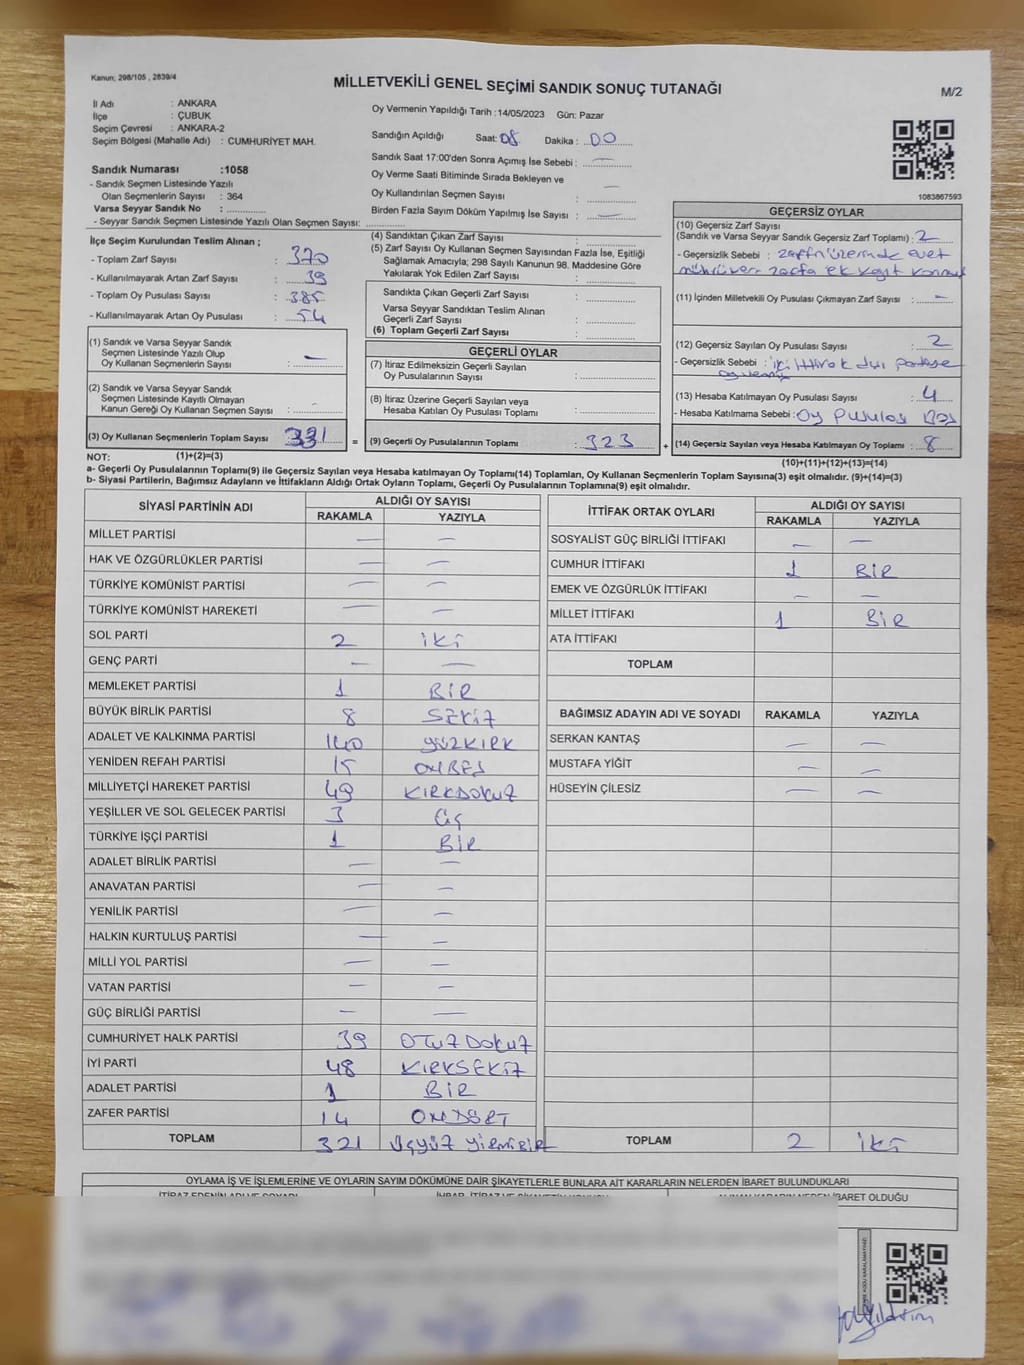 Kanun; 298/105 , 2839/4
MİLLETVEKİLİ GENEL SEÇİMİ SANDIK SONUÇ TUTANAĞI
M/2
İl Adı : ANKARA
İlçe : ÇUBUK
Seçim Çevresi : ANKARA-2
Seçim Bölgesi (Mahalle Adı) : CUMHURİYET MAH.
Oy Vermenin Yapıldığı Tarih :14/05/2023 Gün: Pazar
Sandığın Açıldığı Saat: 08 Dakika : 00
Sandık Saat 17:00'den Sonra Açımış İse Sebebi : —
Oy Verme Saati Bitiminde Sırada Bekleyen ve
Oy Kullandırılan Seçmen Sayısı : —
Birden Fazla Sayım Döküm Yapılmış İse Sayısı : —
1083867593
Sandık Numarası :1058
- Sandık Seçmen Listesinde Yazılı
Olan Seçmenlerin Sayısı : 364
Varsa Seyyar Sandık No :
- Seyyar Sandık Seçmen Listesinde Yazılı Olan Seçmen Sayısı:
İlçe Seçim Kurulundan Teslim Alınan ;
- Toplam Zarf Sayısı : 370
- Kullanılmayarak Artan Zarf Sayısı : 39
- Toplam Oy Pusulası Sayısı : 385
- Kullanılmayarak Artan Oy Pusulası : 54
(1) Sandık ve Varsa Seyyar Sandık
Seçmen Listesinde Yazılı Olup
Oy Kullanan Seçmenlerin Sayısı : —
(2) Sandık ve Varsa Seyyar Sandık
Seçmen Listesinde Kayıtlı Olmayan
Kanun Gereği Oy Kullanan Seçmen Sayısı : -
(3) Oy Kullanan Seçmenlerin Toplam Sayısı 331
(1)+(2)=(3)
(4) Sandıktan Çıkan Zarf Sayısı :
(5) Zarf Sayısı Oy Kullanan Seçmen Sayısından Fazla İse, Eşitliği
Sağlamak Amacıyla; 298 Sayılı Kanunun 98. Maddesine Göre
Yakılarak Yok Edilen Zarf Sayısı :
Sandıkta Çıkan Geçerli Zarf Sayısı :
Varsa Seyyar Sandıktan Teslim Alınan
Geçerli Zarf Sayısı :
(6) Toplam Geçerli Zarf Sayısı :
GEÇERLİ OYLAR
(7) İtiraz Edilmeksizin Geçerli Sayılan
Oy Pusulalarının Sayısı :
(8) İtiraz Üzerine Geçerli Sayılan veya
Hesaba Katılan Oy Pusulası Toplamı :
= (9) Geçerli Oy Pusulalarının Toplamı : 323
GEÇERSİZ OYLAR
(10) Geçersiz Zarf Sayısı
(Sandık ve Varsa Seyyar Sandık Geçersiz Zarf Toplamı) : 2
- Geçersizlik Sebebi : zarfın üzerinde evet
zarfa ek kağıt
(11) İçinden Milletvekili Oy Pusulası Çıkmayan Zarf Sayısı : –
(12) Geçersiz Sayılan Oy Pusulası Sayısı : 2
- Geçersizlik Sebebi : iki ittifak
(13) Hesaba Katılmayan Oy Pusulası Sayısı : 4
- Hesaba Katılmama Sebebi : Oy Pusulası Boş
+ (14) Geçersiz Sayılan veya Hesaba Katılmayan Oy Toplamı : 8
(10)+(11)+(12)+(13)=(14)
NOT:
a- Geçerli Oy Pusulalarının Toplamı(9) ile Geçersiz Sayılan veya Hesaba katılmayan Oy Toplamı(14) Toplamları, Oy Kullanan Seçmenlerin Toplam Sayısına(3) eşit olmalıdır. (9)+(14)=(3)
b- Siyasi Partilerin, Bağımsız Adayların ve İttifakların Aldığı Ortak Oyların Toplamı, Geçerli Oy Pusulalarının Toplamına(9) eşit olmalıdır.
SİYASİ PARTİNİN ADI ALDIĞI OY SAYISI
RAKAMLA YAZIYLA
MİLLET PARTİSİ — —
HAK VE ÖZGÜRLÜKLER PARTİSİ — —
TÜRKİYE KOMÜNİST PARTİSİ — —
TÜRKİYE KOMÜNİST HAREKETİ — —
SOL PARTİ 2 iki
GENÇ PARTİ — —
MEMLEKET PARTİSİ 1 BİR
BÜYÜK BİRLİK PARTİSİ 8 SEKİZ
ADALET VE KALKINMA PARTİSİ 140 YÜZKIRK
YENİDEN REFAH PARTİSİ 15 ONBEŞ
MİLLİYETÇİ HAREKET PARTİSİ 49 KIRKDOKUZ
YEŞİLLER VE SOL GELECEK PARTİSİ 3 Üç
TÜRKİYE İŞÇİ PARTİSİ 1 BİR
ADALET BİRLİK PARTİSİ — —
ANAVATAN PARTİSİ — —
YENİLİK PARTİSİ — —
HALKIN KURTULUŞ PARTİSİ — —
MİLLİ YOL PARTİSİ — —
VATAN PARTİSİ — —
GÜÇ BİRLİĞİ PARTİSİ — —
CUMHURİYET HALK PARTİSİ 39 OTUZDOKUZ
İYİ PARTİ 48 KIRKSEKİZ
ADALET PARTİSİ 1 BİR
ZAFER PARTİSİ 14 ONDÖRT
TOPLAM 321 ÜÇYÜZ YİRMİBİR
İTTİFAK ORTAK OYLARI ALDIĞI OY SAYISI
RAKAMLA YAZIYLA
SOSYALİST GÜÇ BİRLİĞİ İTTİFAKI — —
CUMHUR İTTİFAKI 1 BİR
EMEK VE ÖZGÜRLÜK İTTİFAKI — —
MİLLET İTTİFAKI 1 BİR
ATA İTTİFAKI
TOPLAM
BAĞIMSIZ ADAYIN ADI VE SOYADI RAKAMLA YAZIYLA
SERKAN KANTAŞ — —
MUSTAFA YİĞİT — —
HÜSEYİN ÇİLESİZ — —
TOPLAM 2 iki
OYLAMA İŞ VE İŞLEMLERİNE VE OYLARIN SAYIM DÖKÜMÜNE DAİR ŞİKAYETLERLE BUNLARA AİT KARARLARIN NELERDEN İBARET BULUNDUKLARI
İBARET OLDUĞU